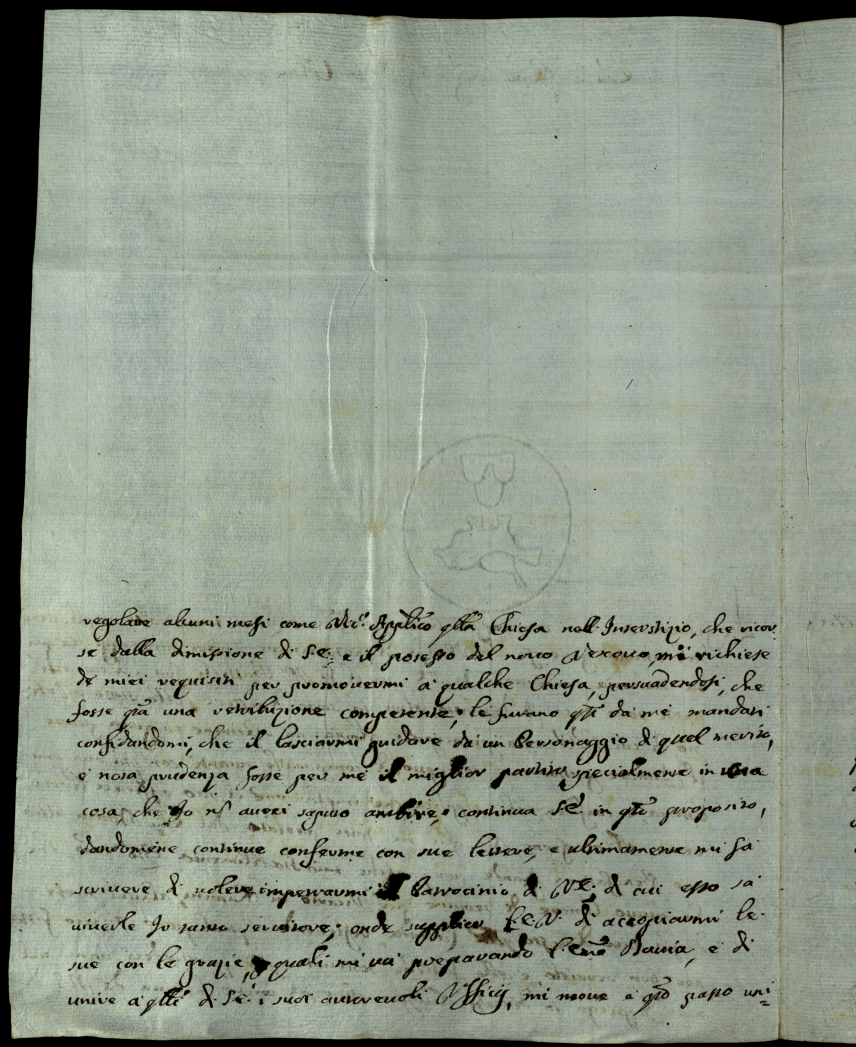 regolare alcuni mesi come Vic.º Applico qlla Chiesa nell'Interstizio, che ricor-
se dalla dimissione di S.E. e il possesso del novo Vescovo, mi richiese
de miei requisiti per promovermi a qualche Chiesa, persuadendosi, che
fosse qta una retribuzione competente; le furano qti da me mandati
confidandomi, che il lasciarmi guidare da un Personaggio di quel merito,
e nota prudenza fosse per me il miglior partito, specialmente in una
cosa, che Io nõ averei saputo ambire, continua S.E. in qto proposito,
dandomene continue conferme con sue lettere, e ultimamente mi fa
scrivere di volere impetrarmi il Patrocinio di V.E. di cui esso sa
viverle Io servitore; onde supplico l'E.V. di accoppiarmi le
sue con le grazie, quali mi va preparando l'Emo Bavia, e di
unire a qlli di S.E. i suoi autorevoli Ufficij, mi move a qto passo uni=